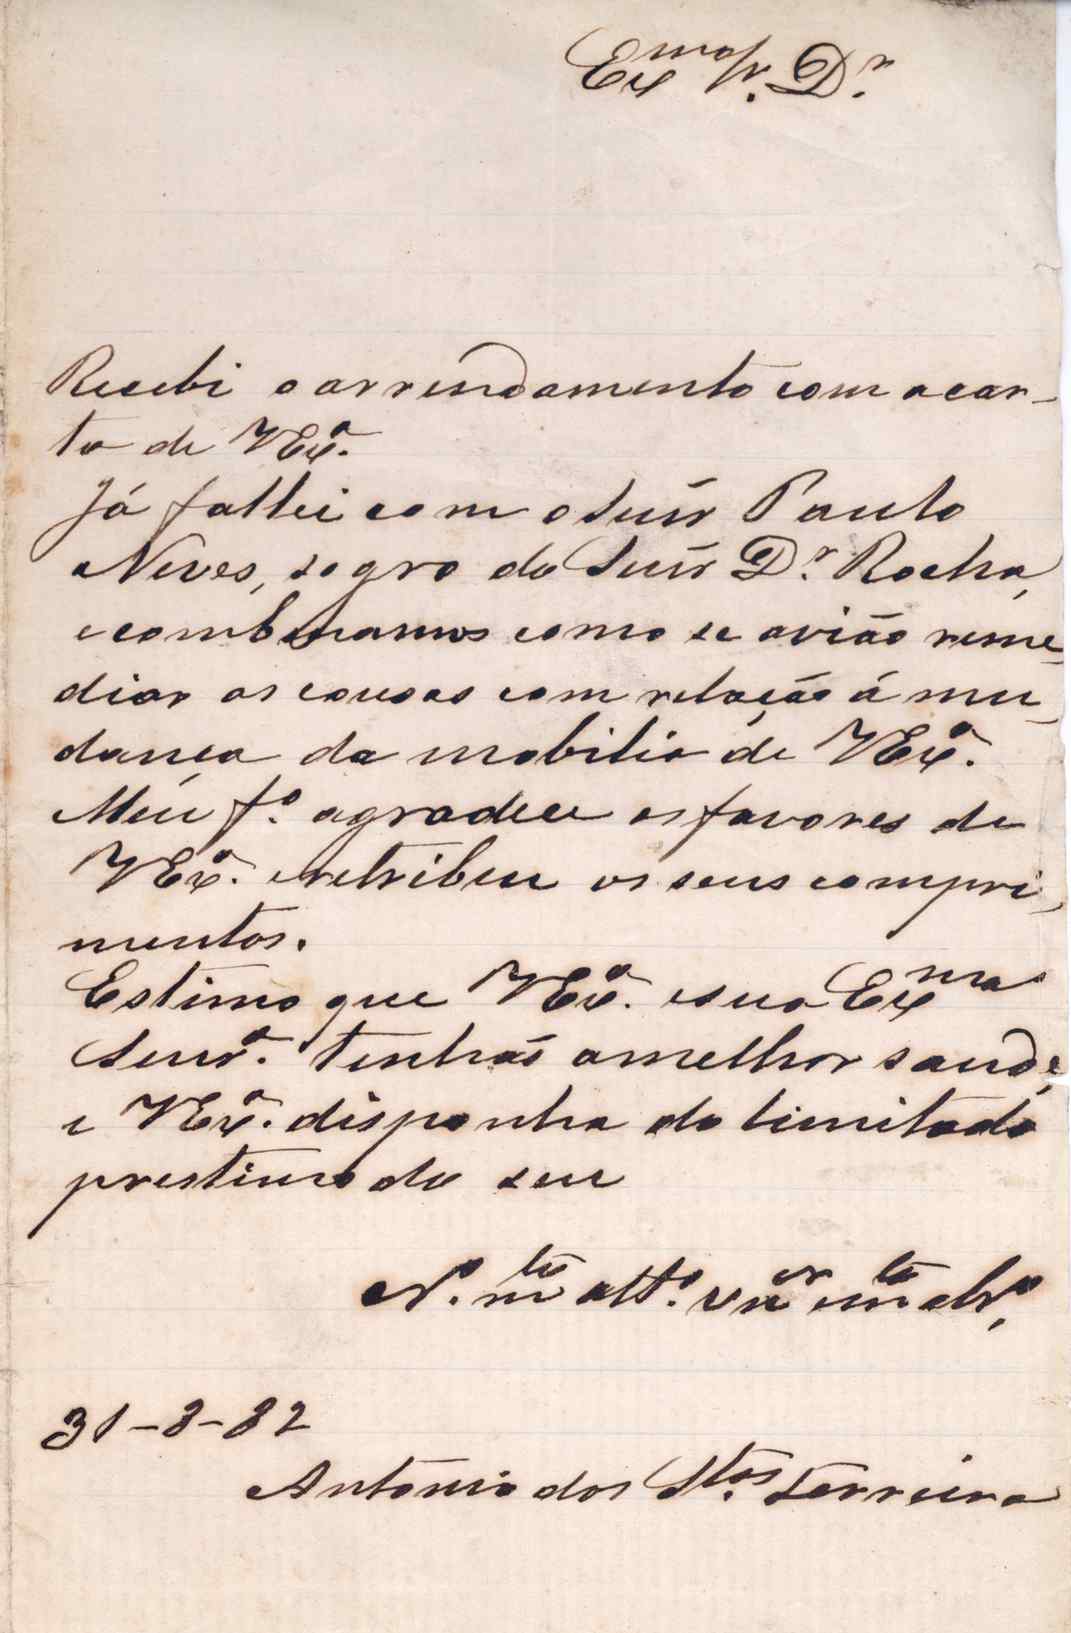 Exmo Sr. Dr.
Recebi o arrendamento com a car-
ta de V Exa.
Já fallei com o Senr Paulo
Neves, sogro do Senr Dr. Rocha,
e combinamos como se avião reme-
diar as cousas com relação á mu-
dança da mobilia de V Exa.
Meu fo. agradece os favores de
V Exa. e retribue os seus compri-
mentos.
Estimo que V Exa. e sua Exma
Senra. tenhão a melhor saude,
e V Exa. disponha do limitado
prestimo do seu
No. mto atto. vnor
31-8-82
Antonio dos Stos. Ferreira